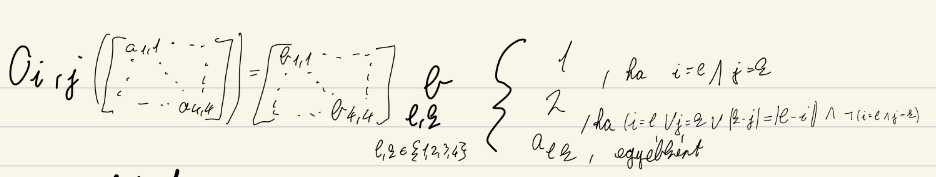 O i,j ([a1,1 ... a4,4]) = [b1,1 ... b4,4] b l,k { 1 , ha i=l ∧ j=k
2 , ha (i=l ∨ j=k ∨ |k-j|=|l-i|) ∧ ¬(i=l ∧ j=k)
a l k , egyébként
l,k ∈ {1,2,3,4}